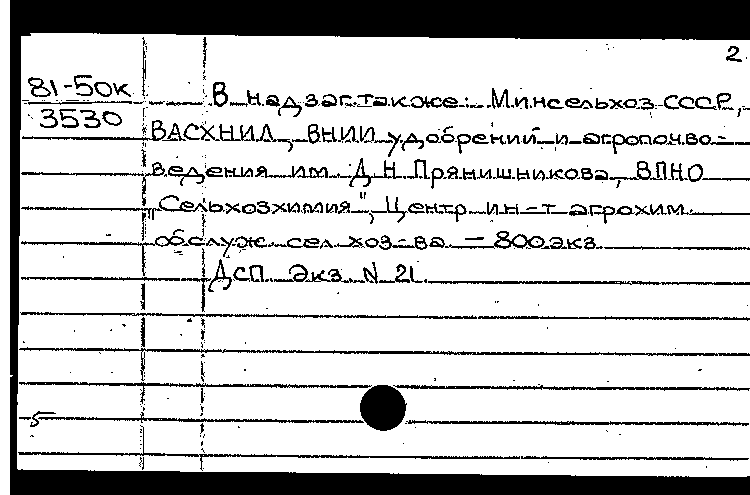 2
81-50к
3530
В надзаг.также: Минсельхоз СССР,
ВАСХНИЛ, ВНИИ удобрений и агропочво-
ведения им. Д.Н.Прянишникова, ВПНО
"Сельхозхимия", Центр.ин-т агрохим.
обслуж. сел.хоз-ва. – 800 экз.
ДСП. Экз. N 21.
5